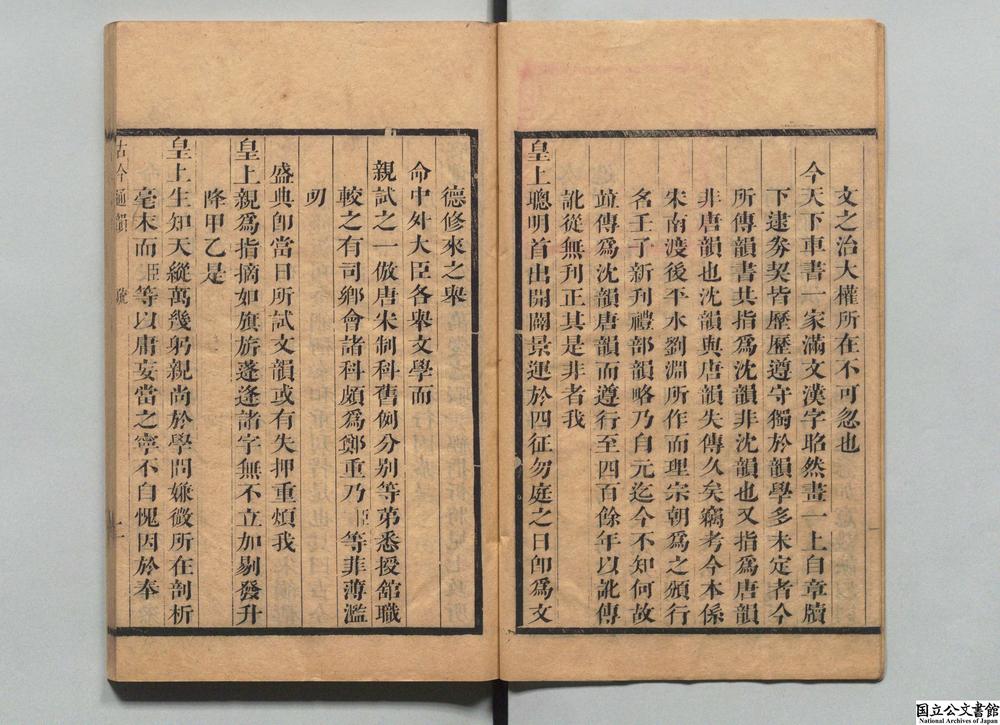 文之治大權所在不可忽也
今天下車書一家滿文漢字昭然畫一上自章牘
下逮券契皆歷歷遵守獨於韻學多未定者今
所傳韻書共指為沈韻非沈韻也又指為唐韻
非唐韻也沈韻與唐韻失傳久矣竊考今本係
宋南渡後平水劉淵所作而理宗朝為之頒行
名壬子新刊禮部韻略乃自元迄今不知何故
竝傳為沈韻唐韻而遵行至四百餘年以訛傳
訛從無刊正其是非者我
皇上聰明首出開闢景運於四征勿庭之日卽為文
德修來之舉
命中外大臣各舉文學而
親試之一倣唐宋制科舊例分別等第悉授館職
較之有司鄉會諸科頗為鄭重乃臣等菲薄濫
叨
盛典卽當日所試文韻或有失押重煩我
皇上親為指摘如旗旂蓬逢諸字無不立加剔發升
降甲乙是
皇上生知天縱萬幾躬親尚於學問嫌微所在剖析
毫末而臣等以庸妄當之寧不自愧因於奉
古今通韻
二
国立公文書館
National Archives of Japan